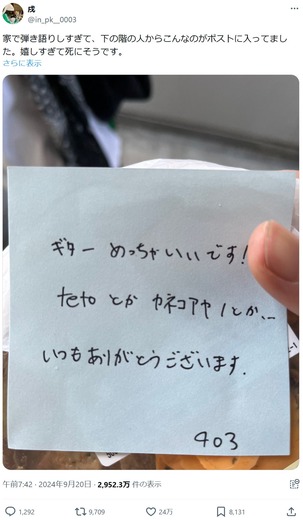 戌
@in_pk__0003
家で弾き語りしすぎて、下の階の人からこんなのがポストに入ってまし
た。嬉しすぎて死にそうです。
さらに表示
ギター めっちゃいいです!
tetoとか カネコアヤノとか、、
いつもありがとうございます.
403
午前7:42 · 2024年9月20日 · 2,952.3万 件の表示
1,292
9,709
24万
8,131